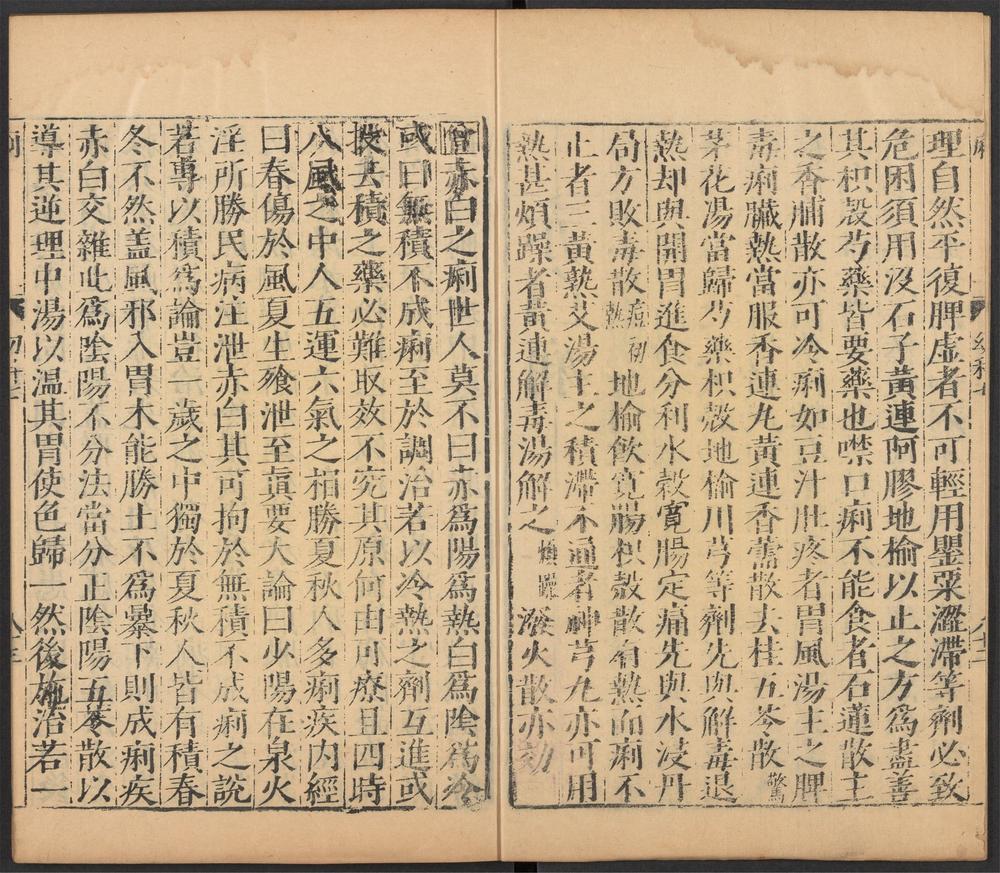 理自然平復脾虛者不可輕用罌粟澀滯等劑必致
危困須用沒石子黃連阿膠地榆以止之方爲盡善
其枳殼芍藥皆要藥也噤口痢不能食者石蓮散主
之香脯散亦可冷痢如豆汁肚疼者胃風湯主之脾
毒痢臟熱當服香連丸黃連香薷散去桂五苓散驚
茅花湯當歸芍藥枳殼地榆川芎等劑先與解毒退
熱却與開胃進食分利水穀寬腸定痛先與水浸丹
局方敗毒散痘初熱地榆飲寬腸枳殼散有熱而痢不
止者三黃熟艾湯主之積滯不通者神芎丸亦可用
熱甚煩躁者黃連解毒湯解之煩躁潑火散亦効
曾赤白之痢世人莫不曰赤爲陽爲熱白爲陰爲冷
或曰無積不成痢至於調治者以冷熱之劑互進或
投去積之藥必難取效不究其原何由可療且四時
八風之中人五運六氣之相勝夏秋人多痢疾内經
曰春傷於風夏生飱泄至眞要大論曰少陽在泉火
淫所勝民病注泄赤白其可拘於無積不成痢之說
若專以積爲論豈一歲之中獨於夏秋人皆有積春
冬不然蓋風邪入胃木能勝土不爲暴下則成痢疾
赤白交雜此爲陰陽不分法當分正陰陽五苓散以
導其逆理中湯以温其胃使色歸一然後施治若一